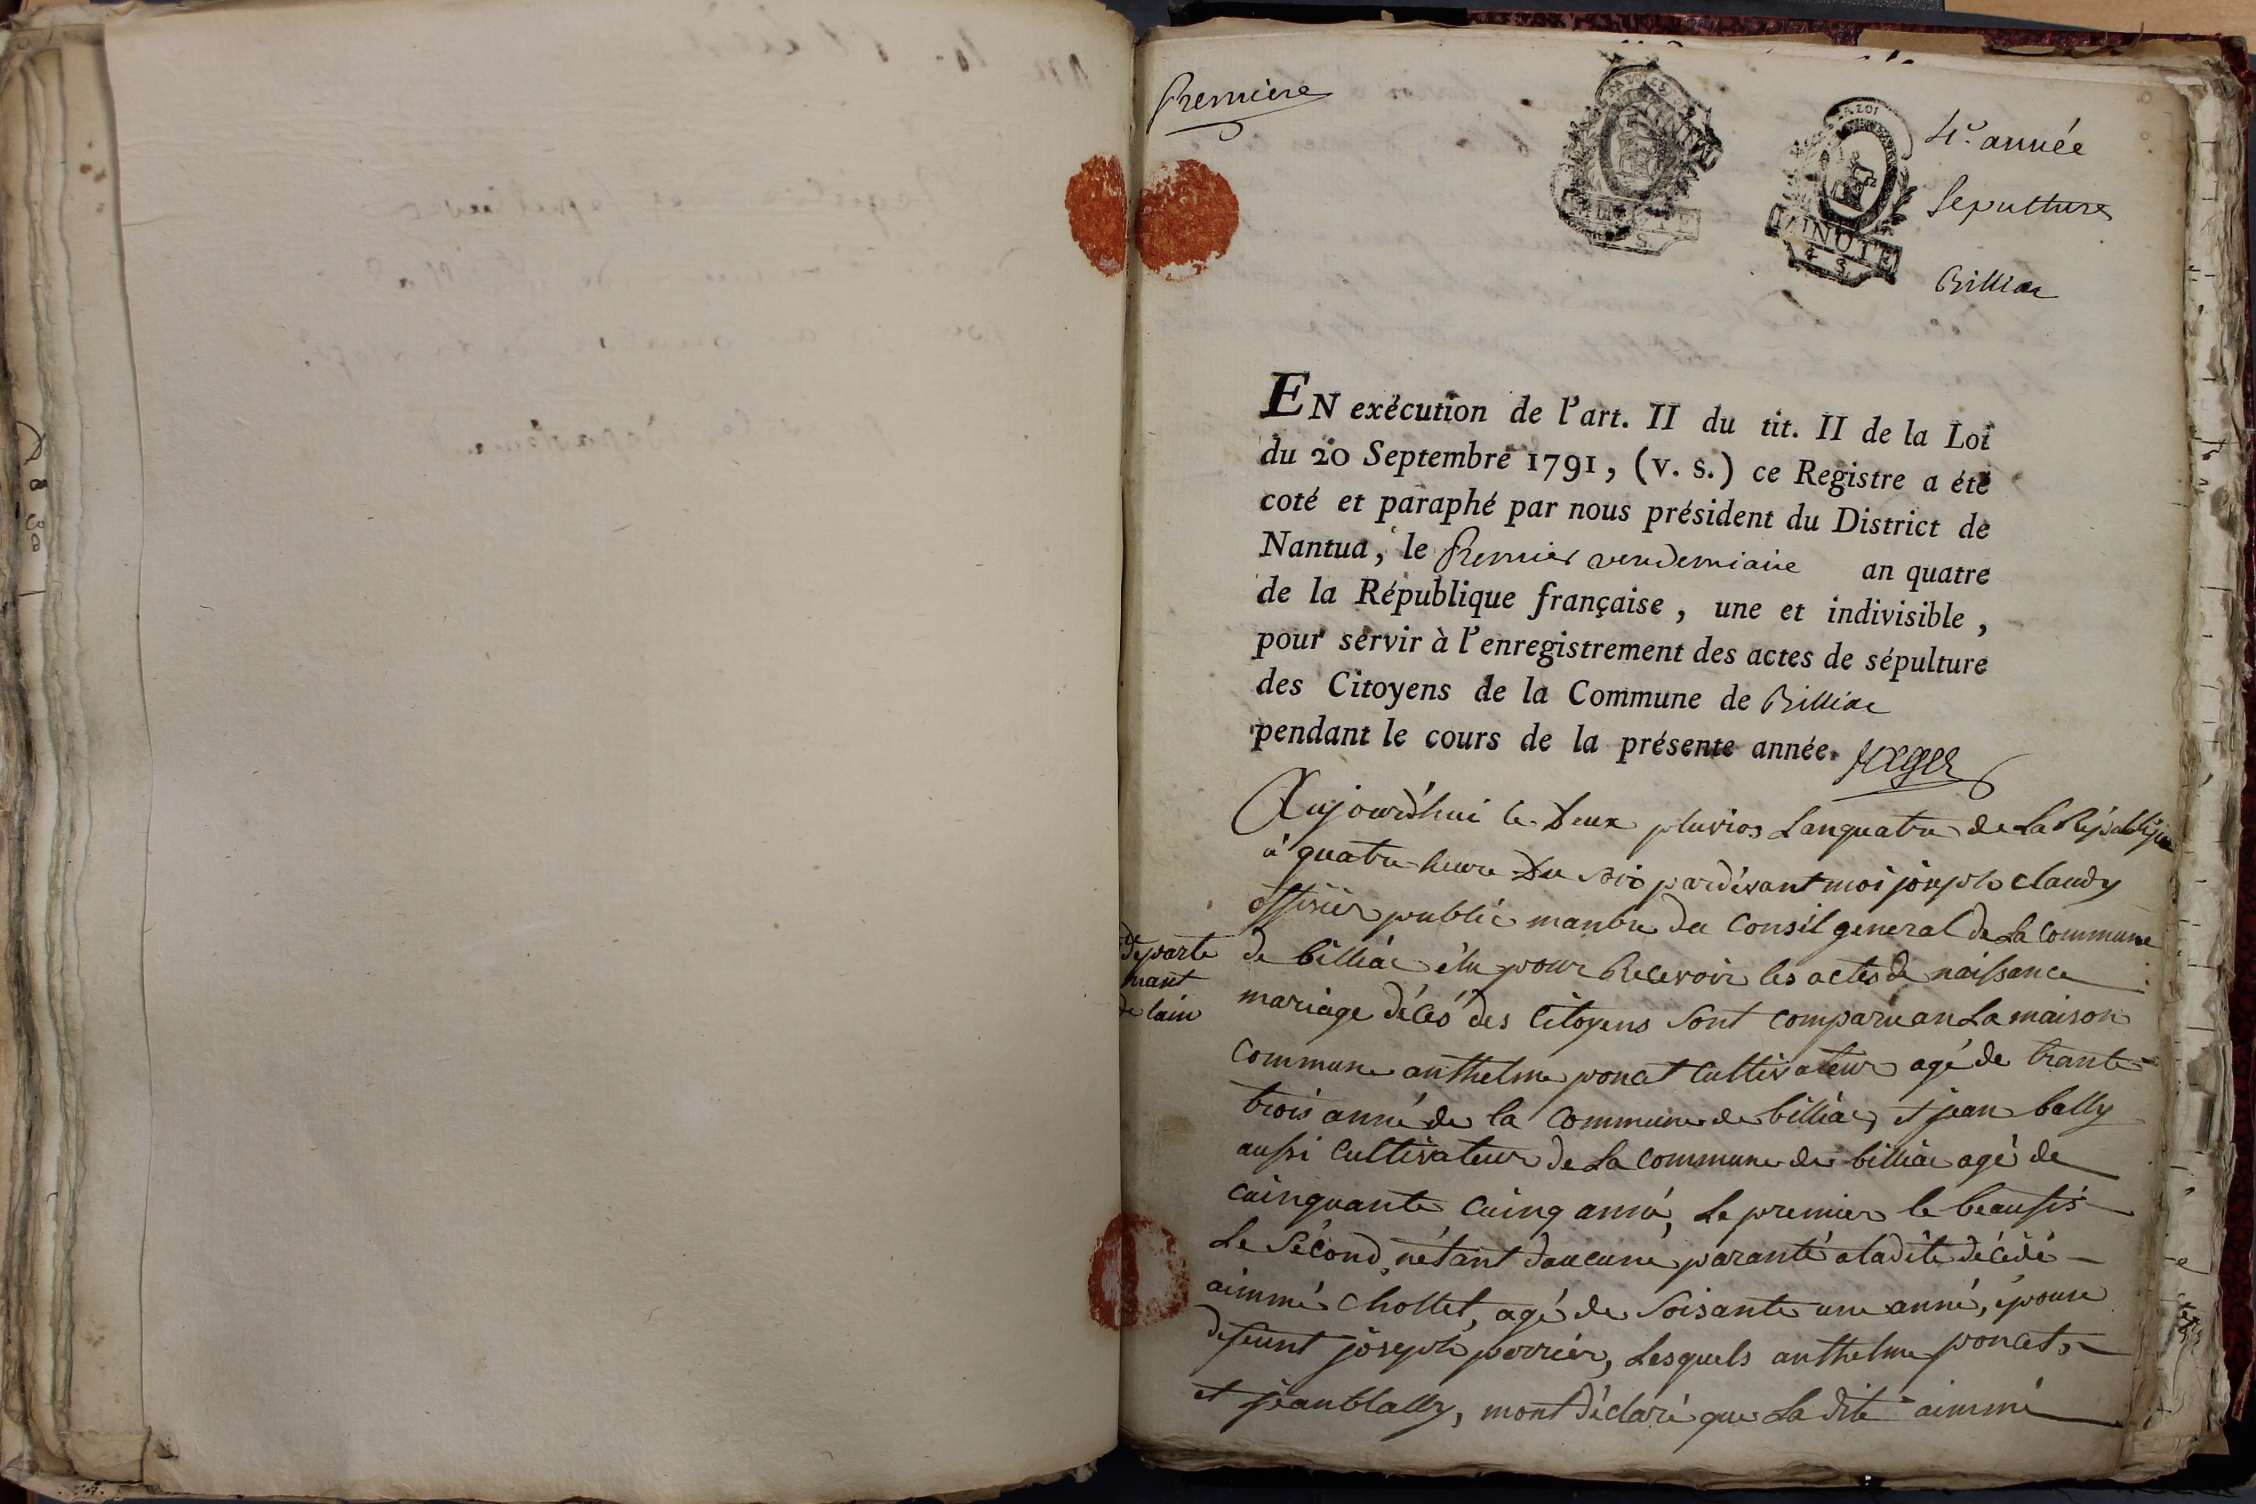 Premiere
4e. année
Sepulture
Billiac
MINUTE
4 S
EN exécution de l'art. II du tit. II de la Loi
du 20 Septembre 1791, (v. s.) ce Registre a été
coté et paraphé par nous président du District de
Nantua, le Premier vendemiaire an quatre
de la République française, une et indivisible,
pour servir à l'enregistrement des actes de sépulture
des Citoyens de la Commune de Billiac
pendant le cours de la présente année.
Aujourd'hui le Deux pluvios Lanquatre de La République
a quatre heure Du soir pardevant moi joseph Claudy
officier public manbre du Consil general de La Commune
de billiac élu pour Recevoir les actes de naissance
mariage décés des Citoyens sont comparu an La maison
Commune anthelme poncet Cultivateur agé de trante
trois anné de la Commune de billiac, et jean bally
aussi Cultivateur de La Commune de billiac agé de
cuinquante Cuinq anné, Le premier le beaufis
Le Sécond, nétant daucune paranté aladite décédé
aimmé Chollet, agé de Soisante une anné, épouse
defeunt joseph perrier, Lesquels anthelme poncet,
et jean blally, mont déclaré que La dite aimmé
departe
mant
de lain